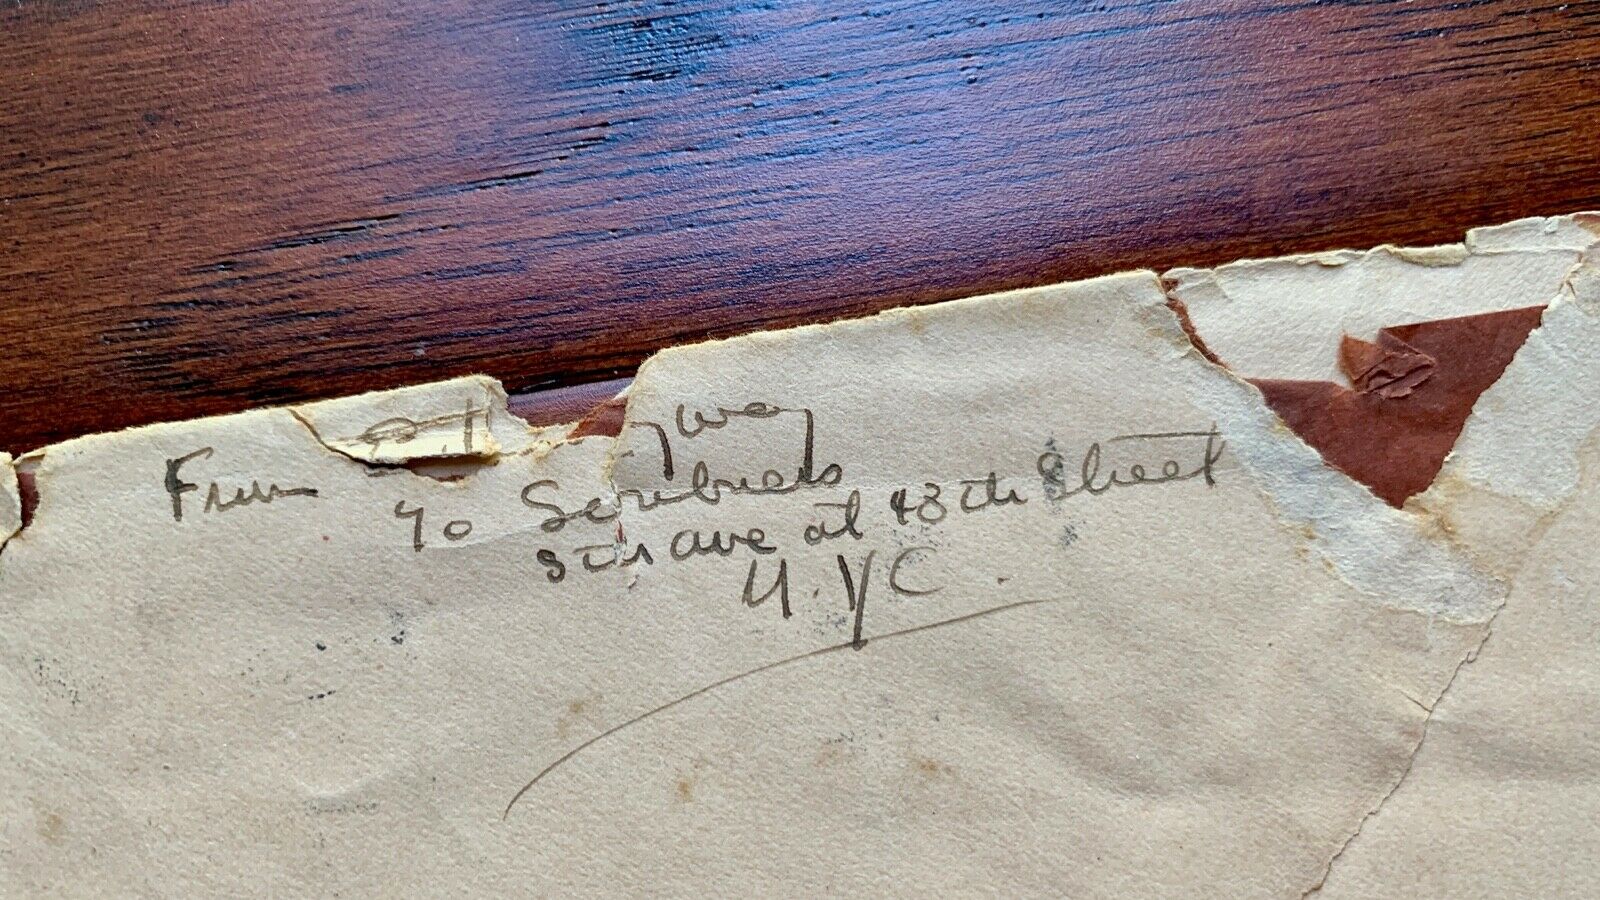 From
gway
℅ Scribners
5th ave at 48th Street
N.Y.C.